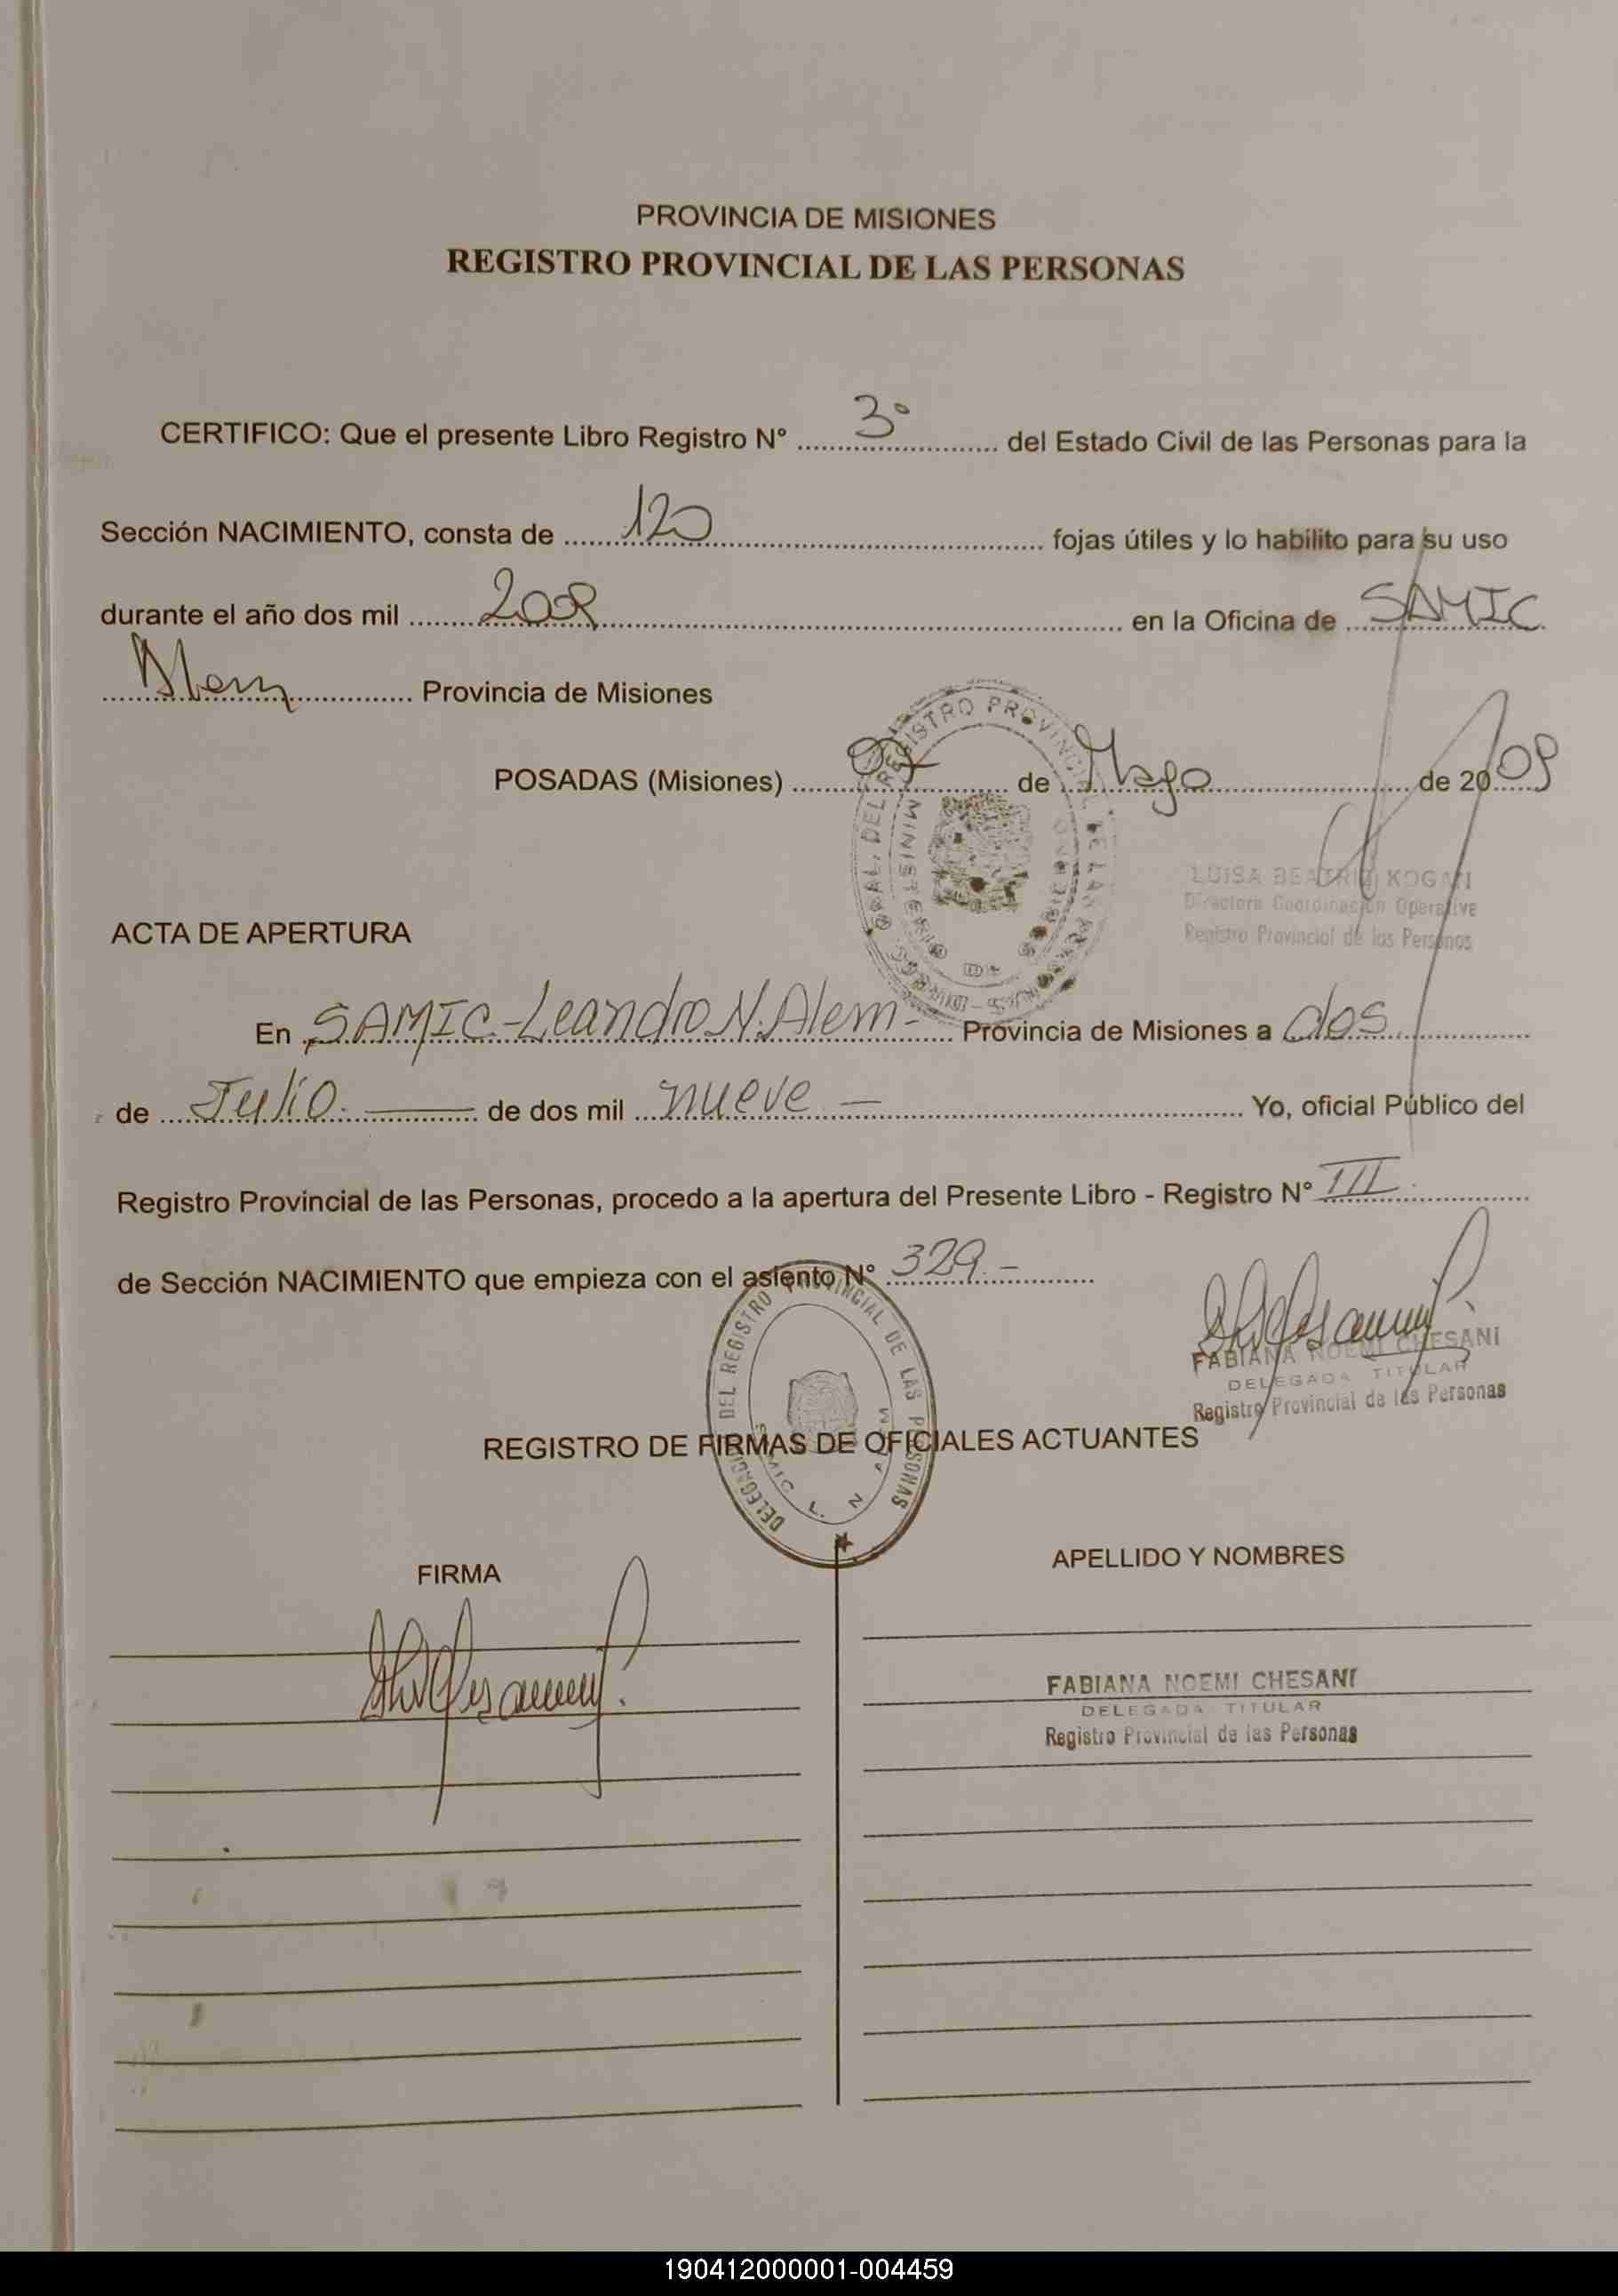 PROVINCIA DE MISIONES
REGISTRO PROVINCIAL DE LAS PERSONAS
CERTIFICO: Que el presente Libro Registro N° 3° del Estado Civil de las Personas para la
Sección NACIMIENTO, consta de 120 fojas útiles y lo habilito para su uso
durante el año dos mil 2009 en la Oficina de SAMIC
Alem Provincia de Misiones
POSADAS (Misiones) de Mayo de 2009
LUISA BEATRIZ KOGAN
Directora Coordinación Operativa
Registro Provincial de las Personas
ACTA DE APERTURA
En SAMIC-Leandro N. Alem- Provincia de Misiones a dos
de Julio. de dos mil nueve — Yo, oficial Público del
Registro Provincial de las Personas, procedo a la apertura del Presente Libro - Registro N° III
de Sección NACIMIENTO que empieza con el asiento N° 329.-
FABIANA NOEMI CHESANI
DELEGADA TITULAR
Registro Provincial de las Personas
DELEGACION DEL REGISTRO PROVINCIAL DE LAS PERSONAS
SAMIC L. N ALEM
REGISTRO DE FIRMAS DE OFICIALES ACTUANTES
FIRMA
APELLIDO Y NOMBRES
FABIANA NOEMI CHESANI
DELEGADA TITULAR
Registro Provincial de las Personas
190412000001-004459